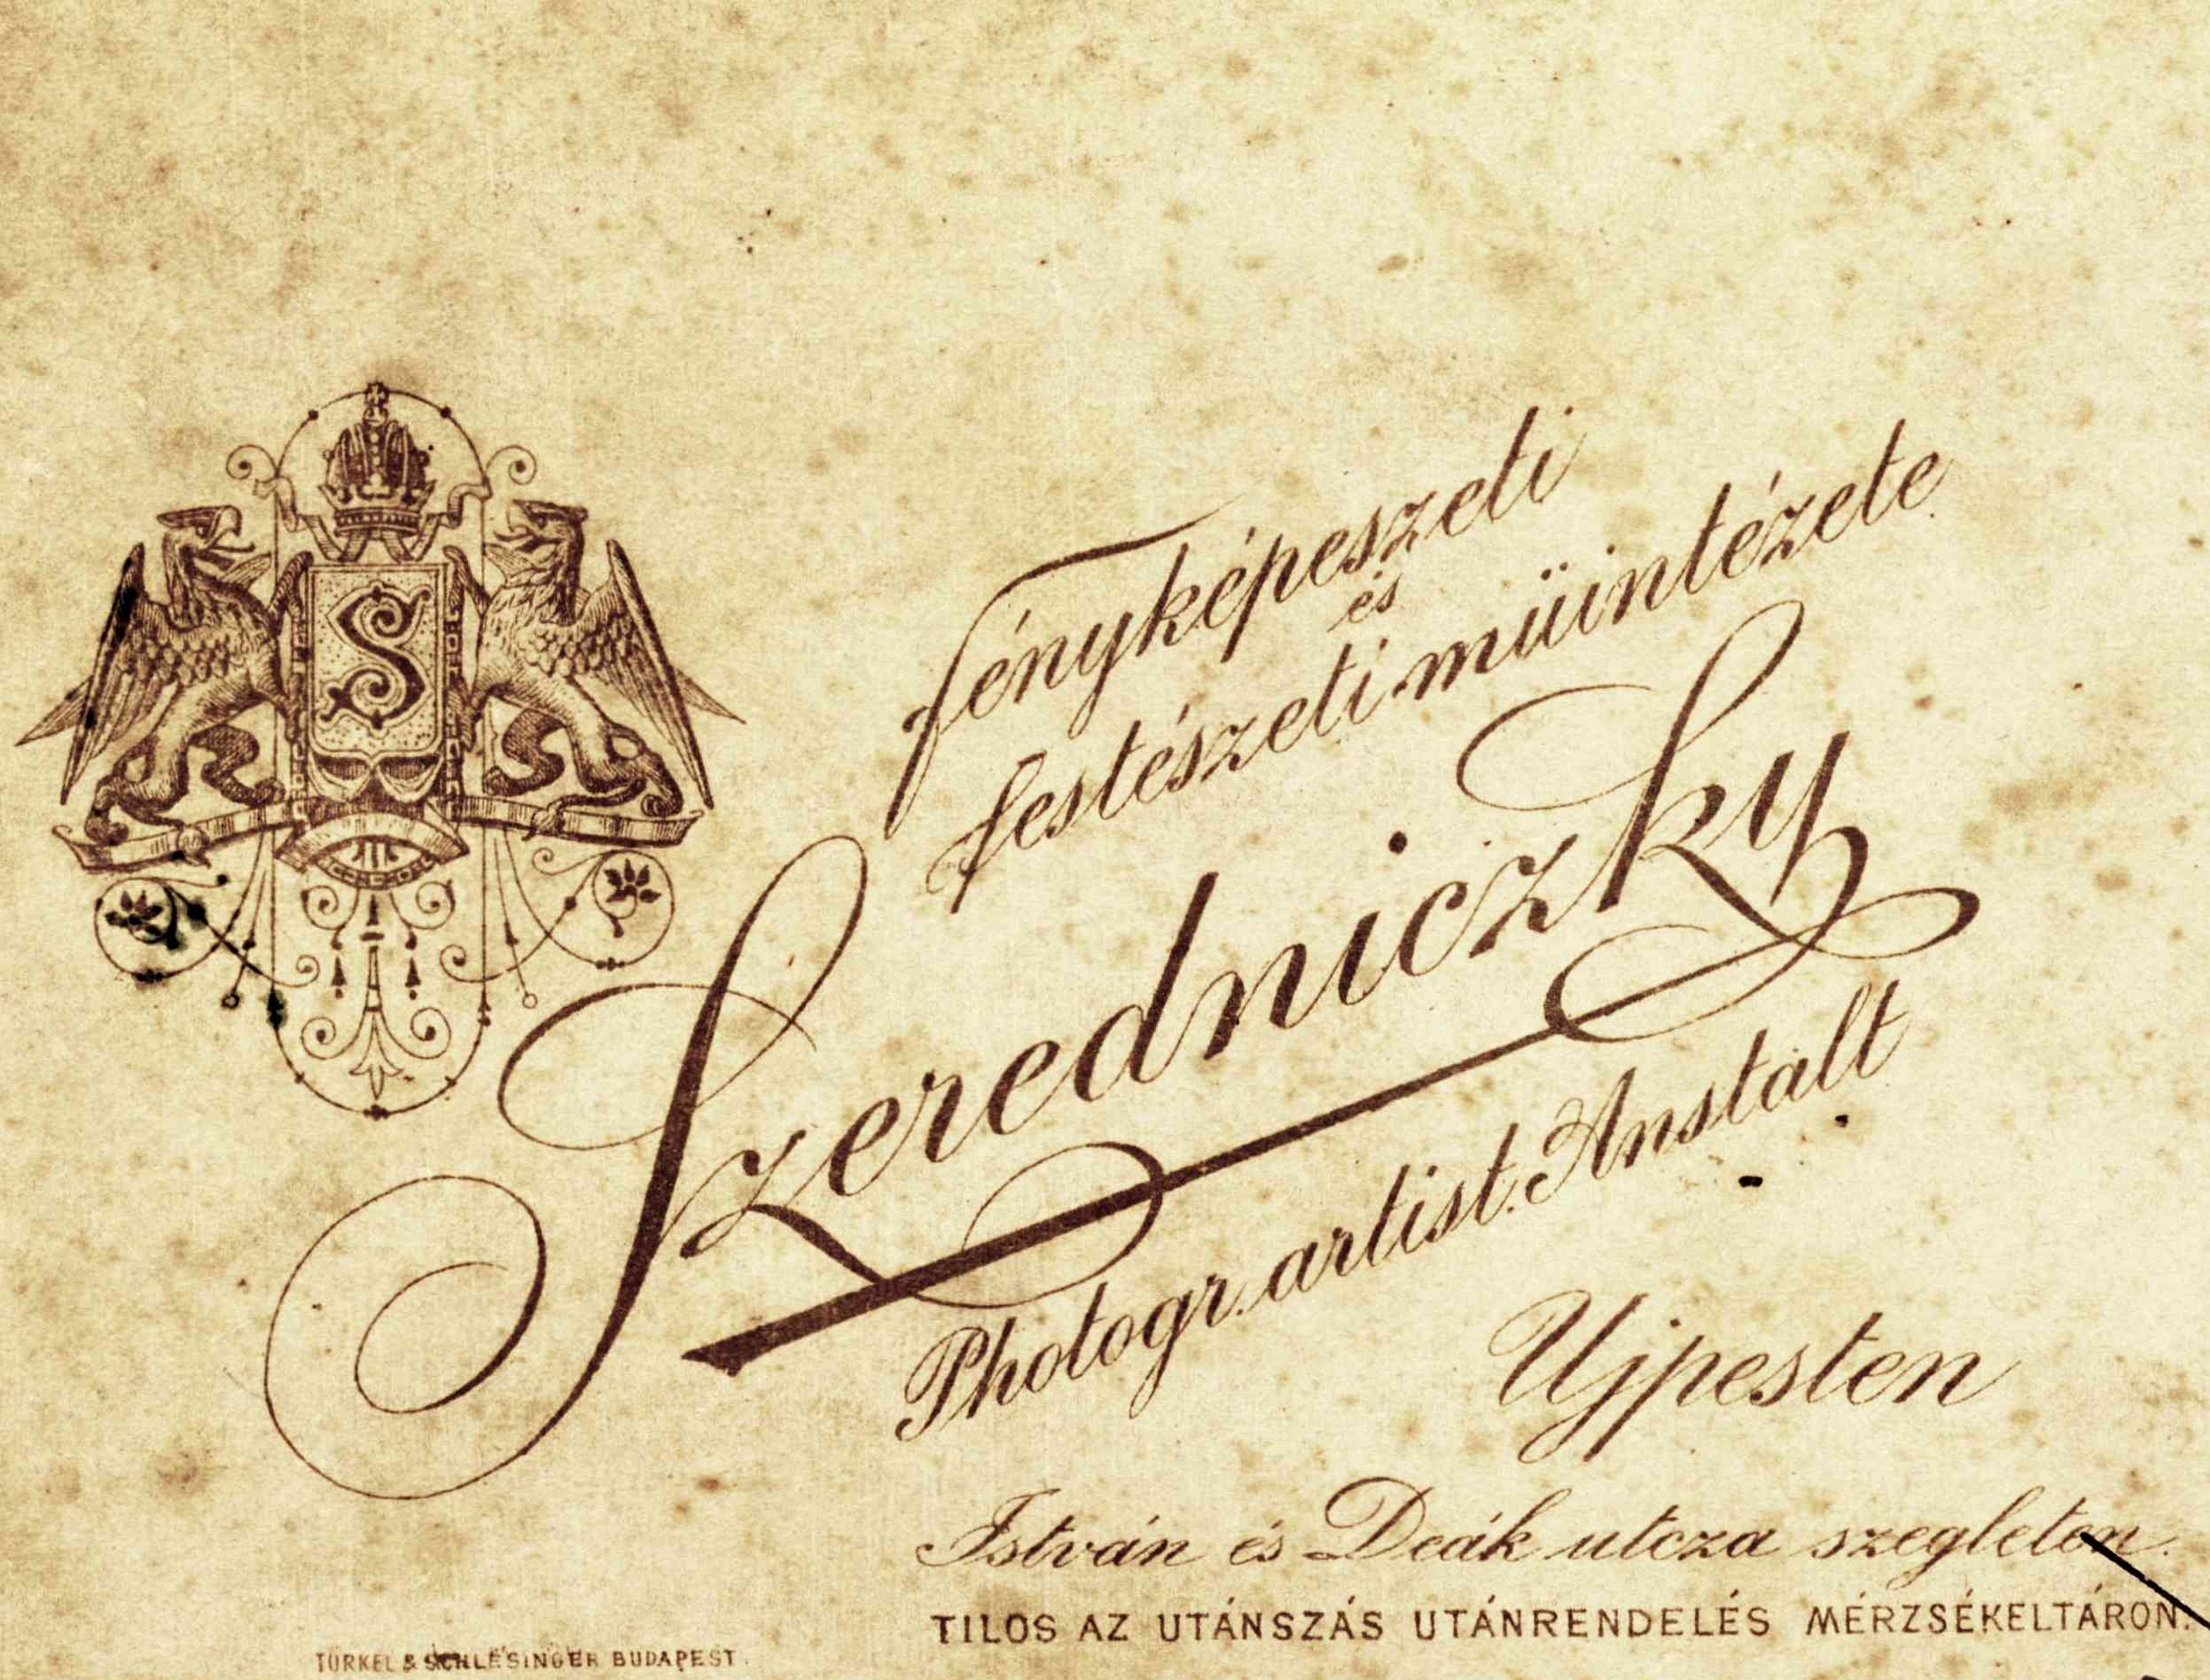 S
Fényképeszeti
és
festészeti müintézete
Szeredniczky
Photogr. artist. Anstalt
Ujpesten
István és Deák utcza szegleten.
TILOS AZ UTÁNSZÁS UTÁNRENDELÉS MÉRZSÉKELTÁRON.
TÜRKEL & SCHLESINGER BUDAPEST.